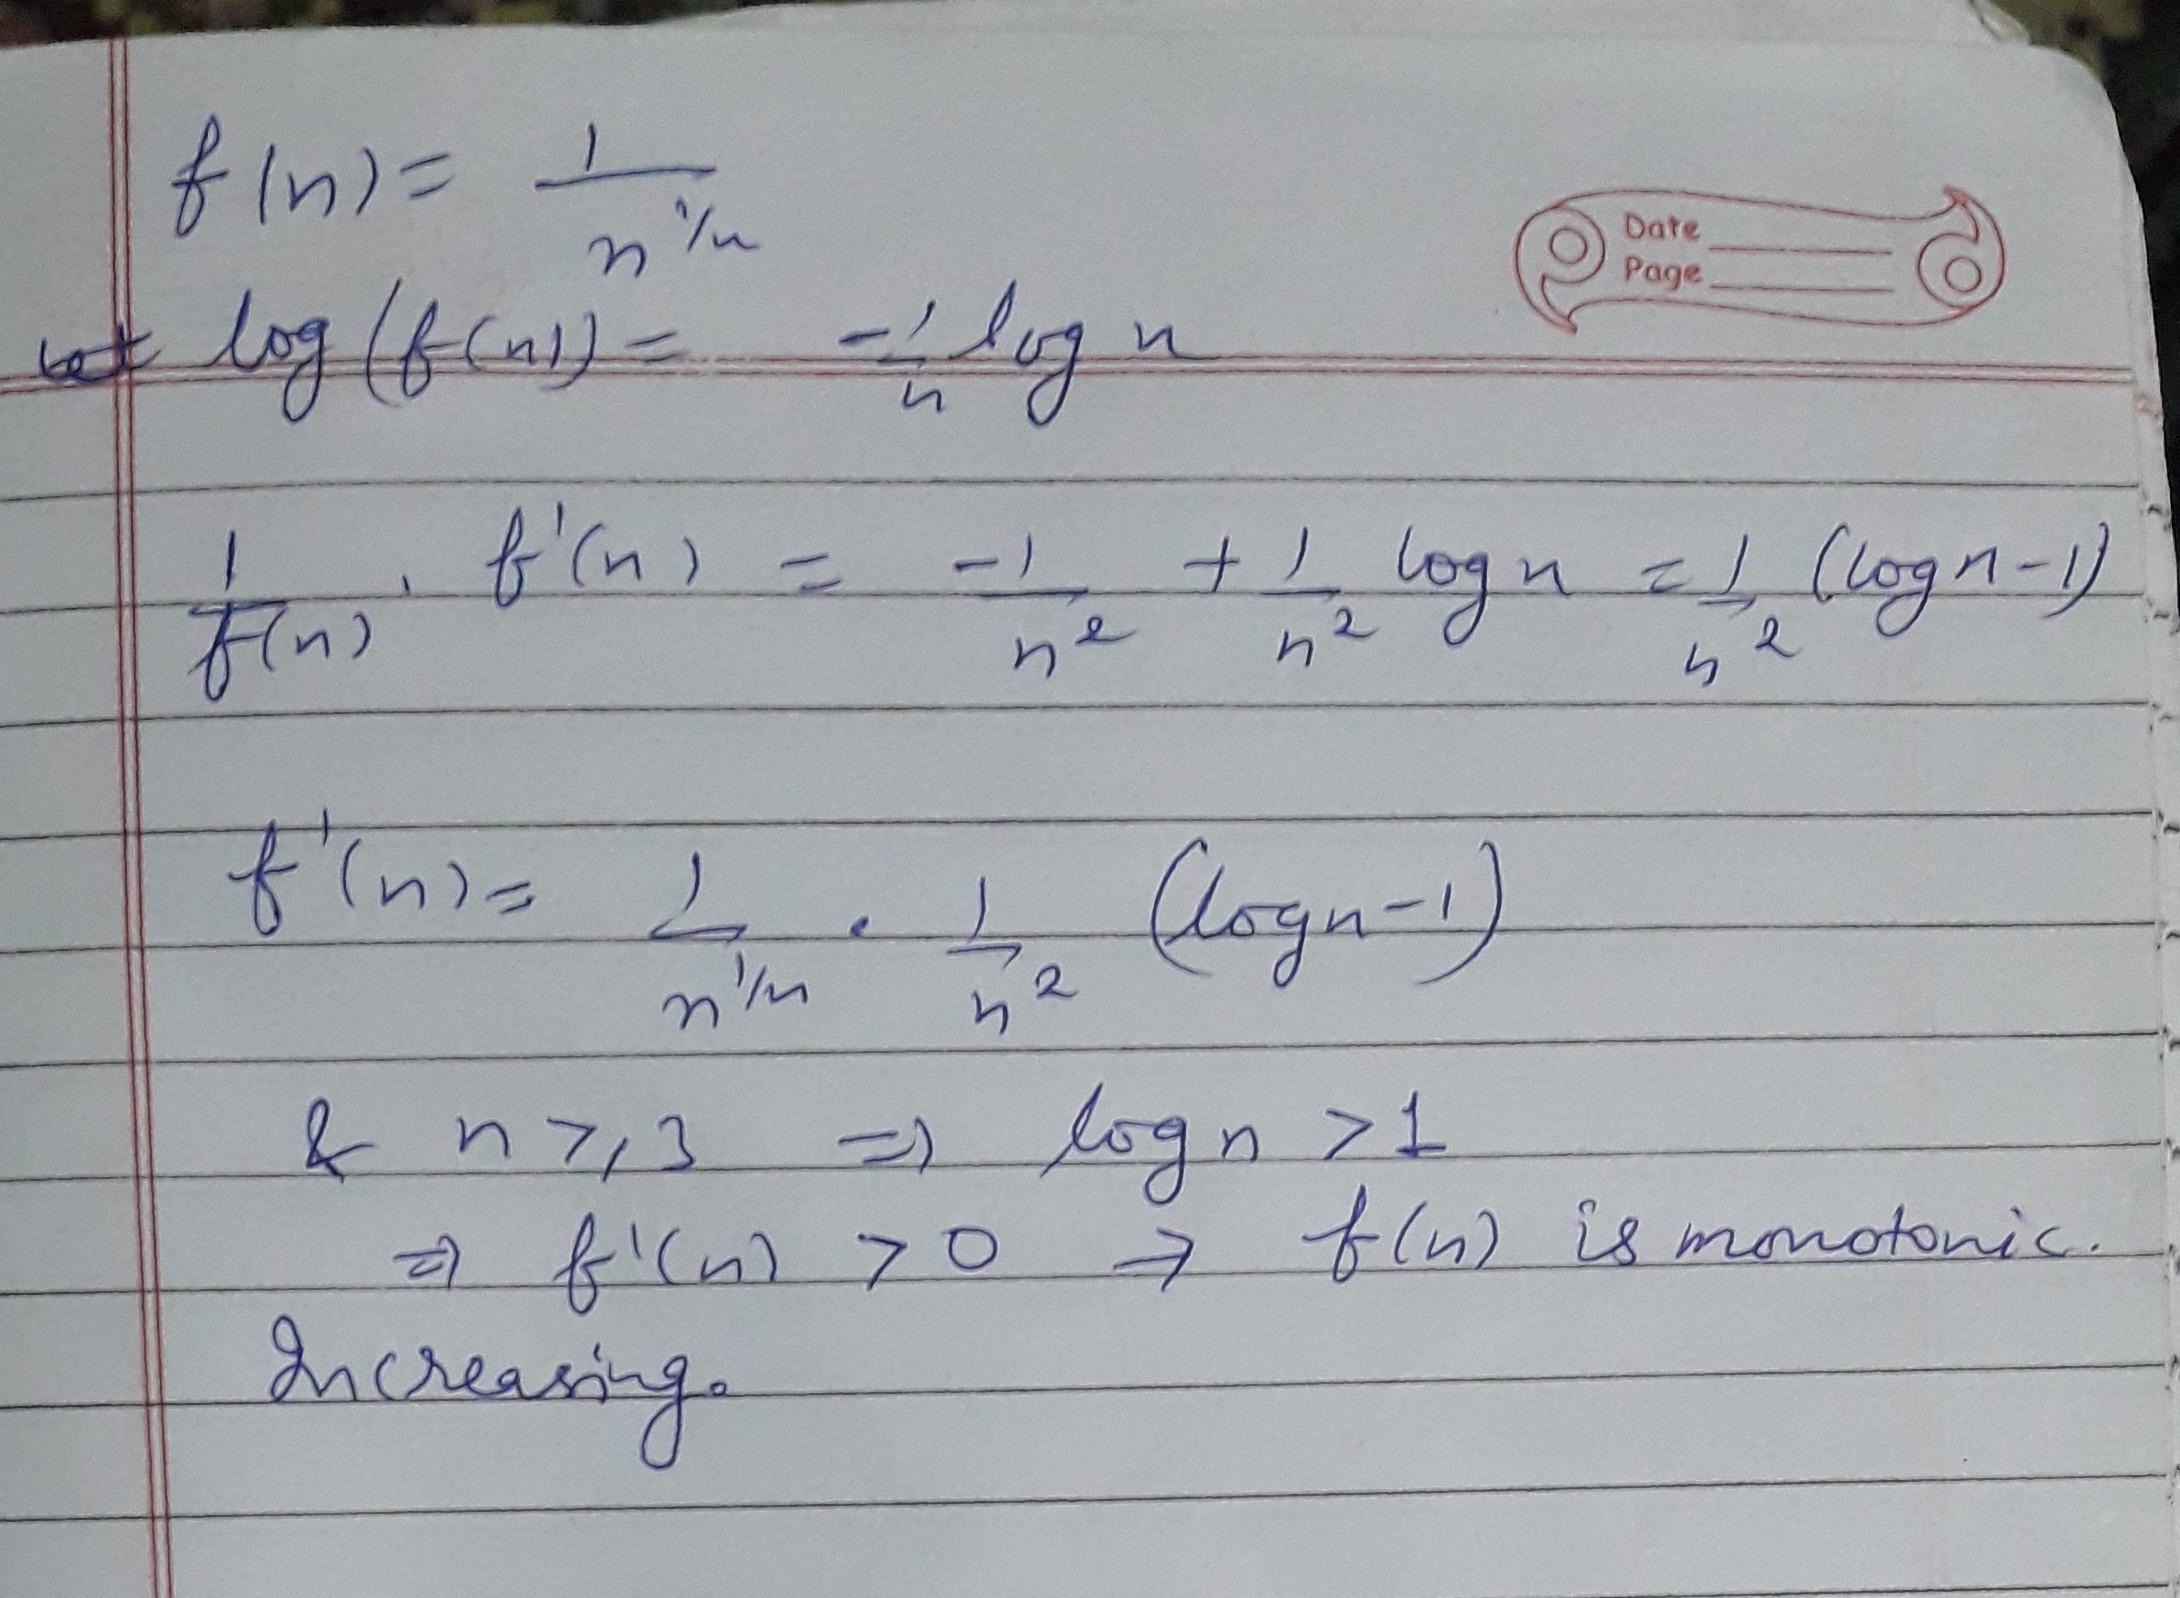 f(n) = 1/n^{1/n}
Date
Page
log (f(n)) = -1/n log n
1/f(n) . f'(n) = -1/n² + 1/n² log n = 1/n² (log n - 1)
f'(n) = 1/n^{1/n} . 1/n² (log n - 1)
& n ⩾ 3 ⇒ log n > 1
⇒ f'(n) > 0 → f(n) is monotonic.
Increasing.